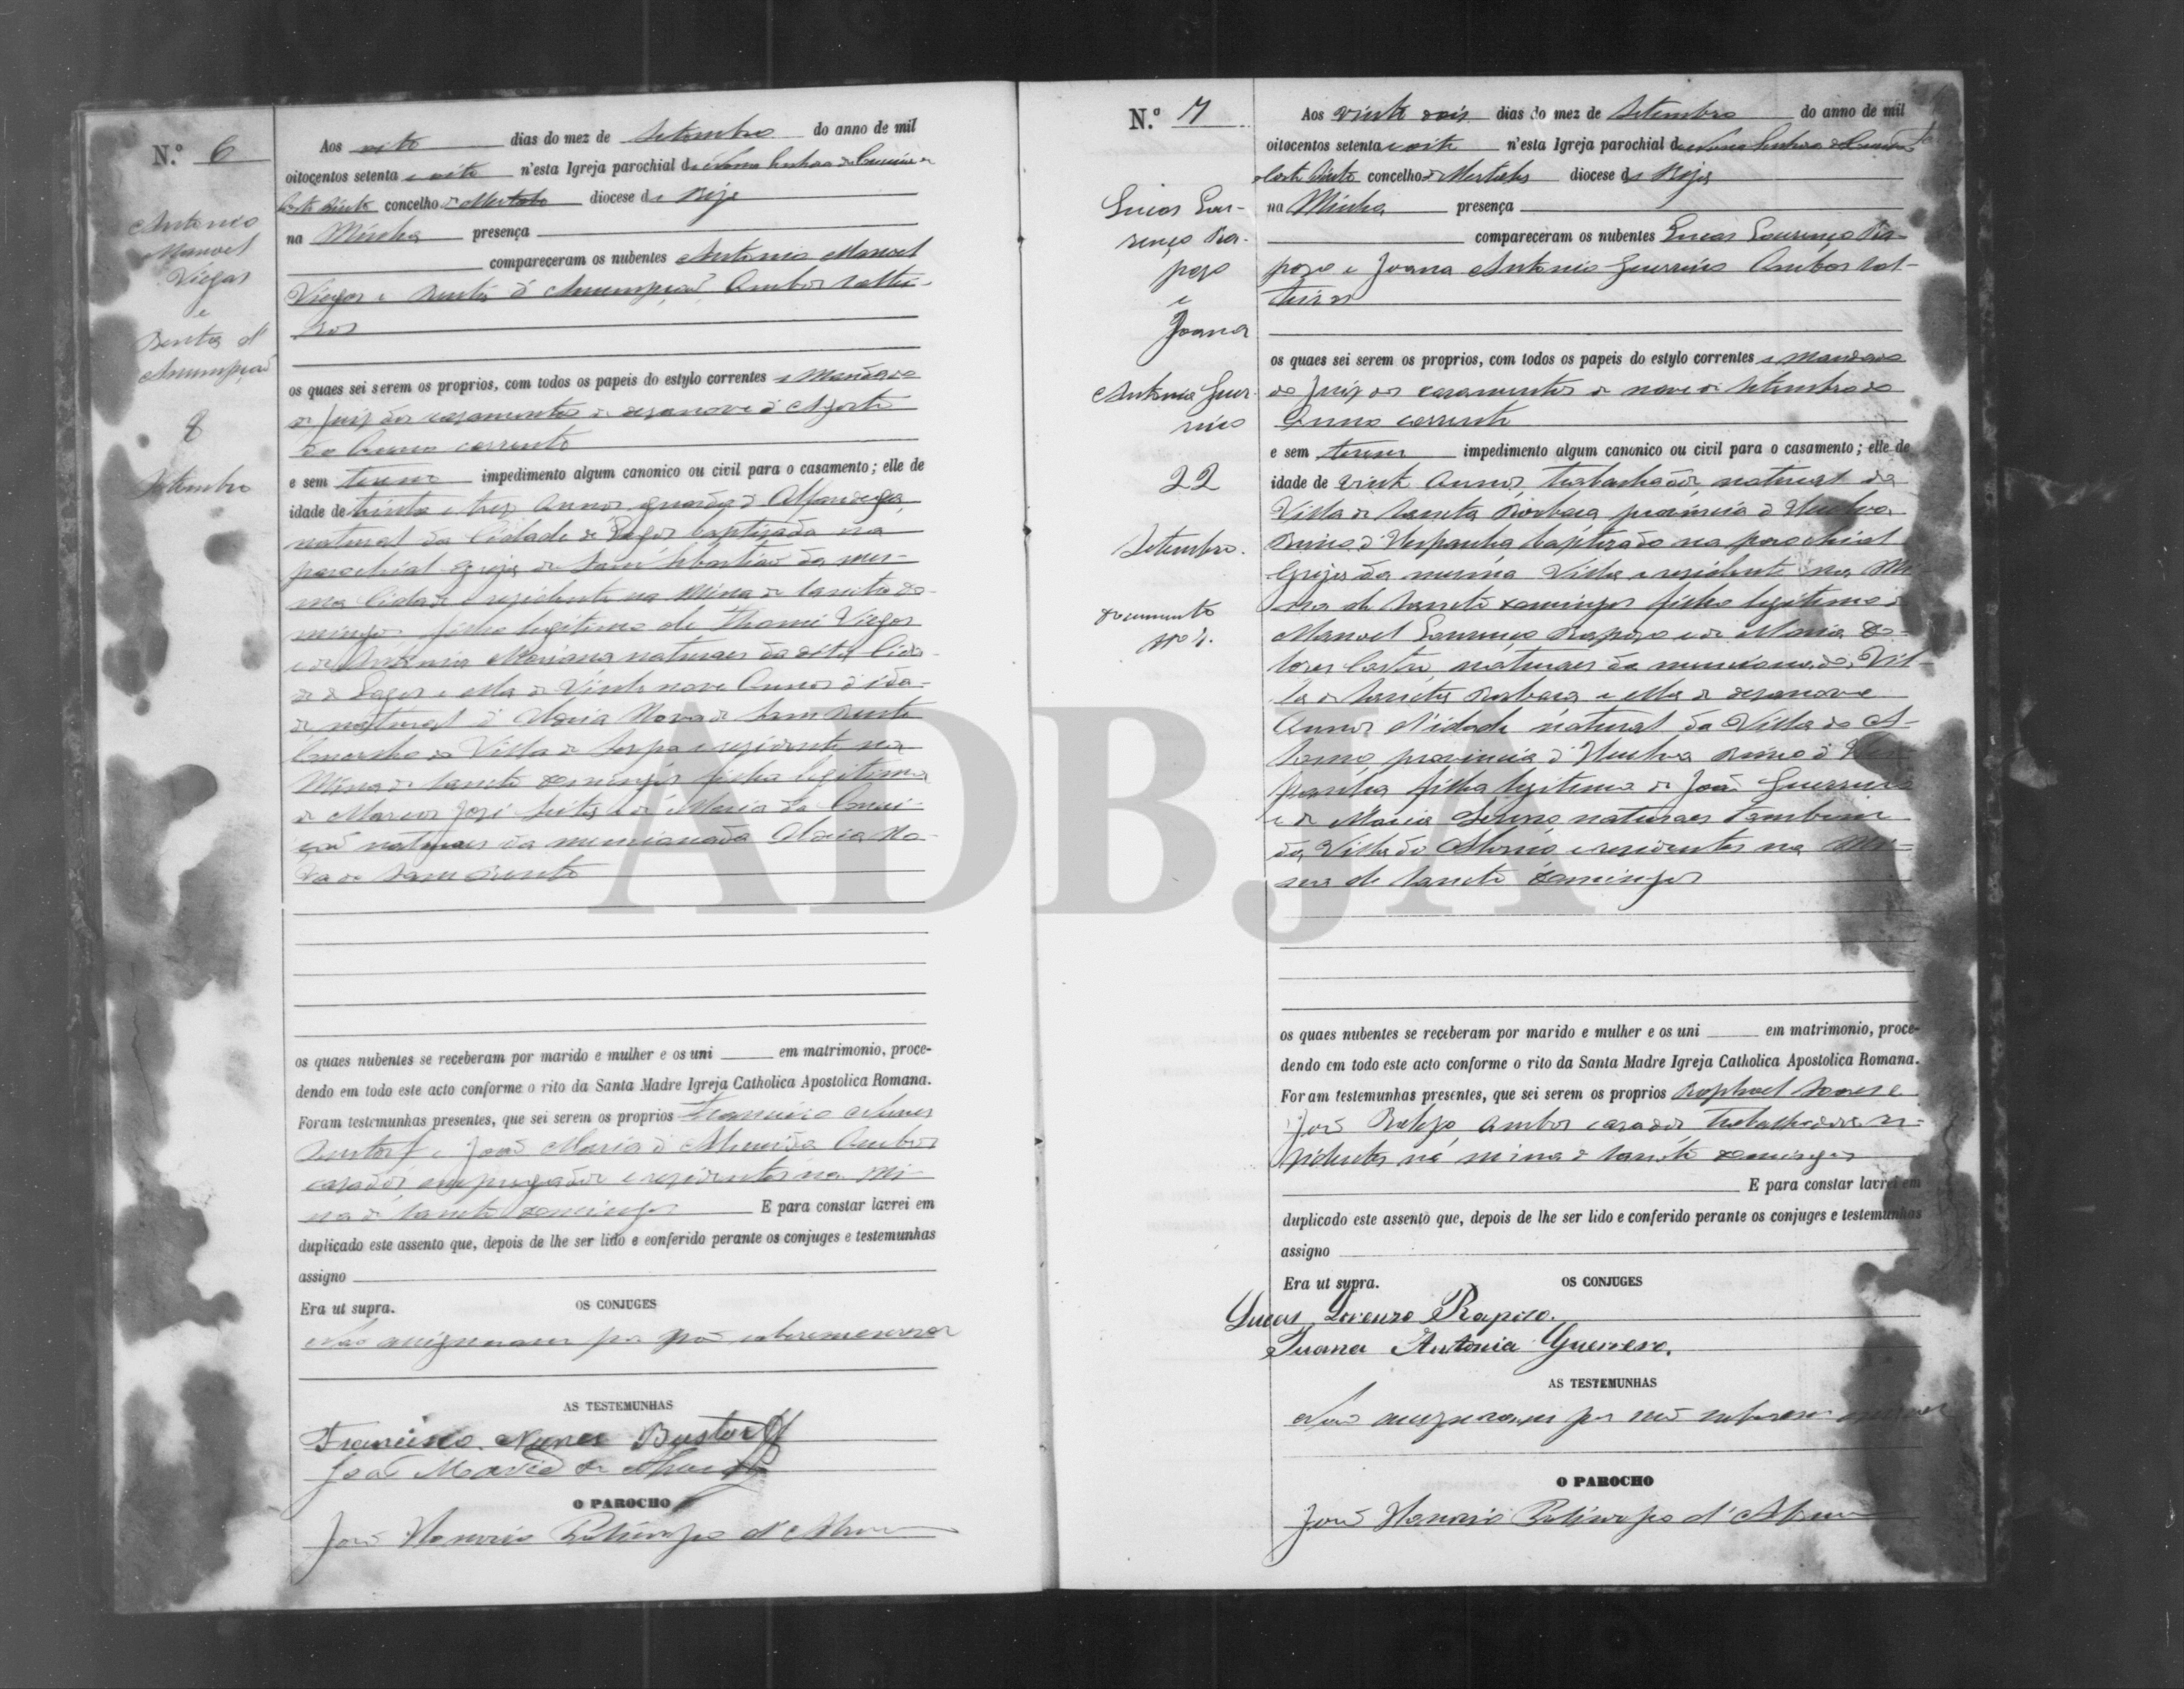 N.º 6
Antonio
Manoel
Viegas
e
Benta d'
Assumpção
8
Setembro
Aos oito dias do mez de Setembro do anno de mil
oitocentos setenta e oito n'esta Igreja parochial de Nossa Senhora da Conceição de
Corte Pinto concelho de Mertola diocese de Beja
na Minha presença
compareceram os nubentes Antonio Manoel
Viegas e Benta d'Assumpção Ambos soltei-
ros
os quaes sei serem os proprios, com todos os papeis do estylo correntes e mandado
do Juiz dos casamentos de desanove d'Agosto
do Anno corrente
e sem terem impedimento algum canonico ou civil para o casamento; elle de
idade de trinta e tres Annos guarda d'Alfandega,
natural da Cidade de Lagos baptizado na
parochial Igreja de Sam Sebastião da mes-
ma Cidade e residente na Mina de Sancto Do-
mingos filho legitimo de Thomé Viegas
e de Antonia Mariana naturaes da dita Cida-
de de Lagos e ella de Vinte nove Annos d'ida-
de natural d'Aldeia Nova de Sam Bento
Concelho da Villa de Serpa e residente na
Mina de Sancto Domingos filha legitima
de Marcos José e de Maria da Concei-
ção naturaes da mencionada Aldeia No-
va de Sam Bento
os quaes nubentes se receberam por marido e mulher e os uni em matrimonio, proce-
dendo em todo este acto conforme o rito da Santa Madre Igreja Catholica Apostolica Romana.
Foram testemunhas presentes, que sei serem os proprios Francisco Nunes
e João Maria d'Almeida Ambos
casados empregados e residentes na Mi-
na de Sancto Domingos E para constar lavrei em
duplicado este assento que, depois de lhe ser lido e conferido perante os conjuges e testemunhas
assigno
Era ut supra. OS CONJUGES
Não assignaram por não saberem escrever
AS TESTEMUNHAS
Francisco Nunes
João Maria de Almeida
O PAROCHO
João Honorio d'
N.º 7
Lucas Lou-
renço Ra-
pozo
e
Joana
Antonia Guer-
reiro
22
Setembro.
Documento
nº 7.
Aos vinte dois dias do mez de Setembro do anno de mil
oitocentos setenta e oito n'esta Igreja parochial de Nossa Senhora da Conceição
de Corte Pinto concelho de Mertola diocese de Beja
na Minha presença
compareceram os nubentes Lucas Lourenço Ra-
pozo e Joana Antonia Guerreiro Ambos sol-
teiros
os quaes sei serem os proprios, com todos os papeis do estylo correntes e mandado
do Juiz dos casamentos de nove de Setembro do
Anno corrente
e sem terem impedimento algum canonico ou civil para o casamento; elle de
idade de vinte Annos, trabalhador, natural da
Villa de Sancta Barbara provincia d'Huelva
Reino d'Hespanha baptizado na parochial
Igreja da mesma Villa e residente na Mi-
na de Sancto Domingos filho legitimo de
Manoel Lourenço Rapozo e de Maria Do-
lores Castro, naturaes da mencionada Vil-
la de Sancta Barbara e ella de desanove
Annos d'idade natural da Villa do A-
losno, provincia d'Huelva Reino d'Hes-
panha filha legitima de João Guerreiro
e de Maria naturaes tambem
da Villa do Alosno e residentes na Mi-
na de Sancto Domingos
os quaes nubentes se receberam por marido e mulher e os uni em matrimonio, proce-
dendo em todo este acto conforme o rito da Santa Madre Igreja Catholica Apostolica Romana.
Foram testemunhas presentes, que sei serem os proprios Raphael e
Ambos casados, trabalhadores re-
sidentes na mina de Sancto Domingos
E para constar lavrei em
duplicado este assento que, depois de lhe ser lido e conferido perante os conjuges e testemunhas
assigno
Era ut supra. OS CONJUGES
Lucas Lorenzo Raposo.
Juana Antonia Guerrero.
AS TESTEMUNHAS
Não assignaram por não saberem escrever
O PAROCHO
João Honorio d'
ADBJA